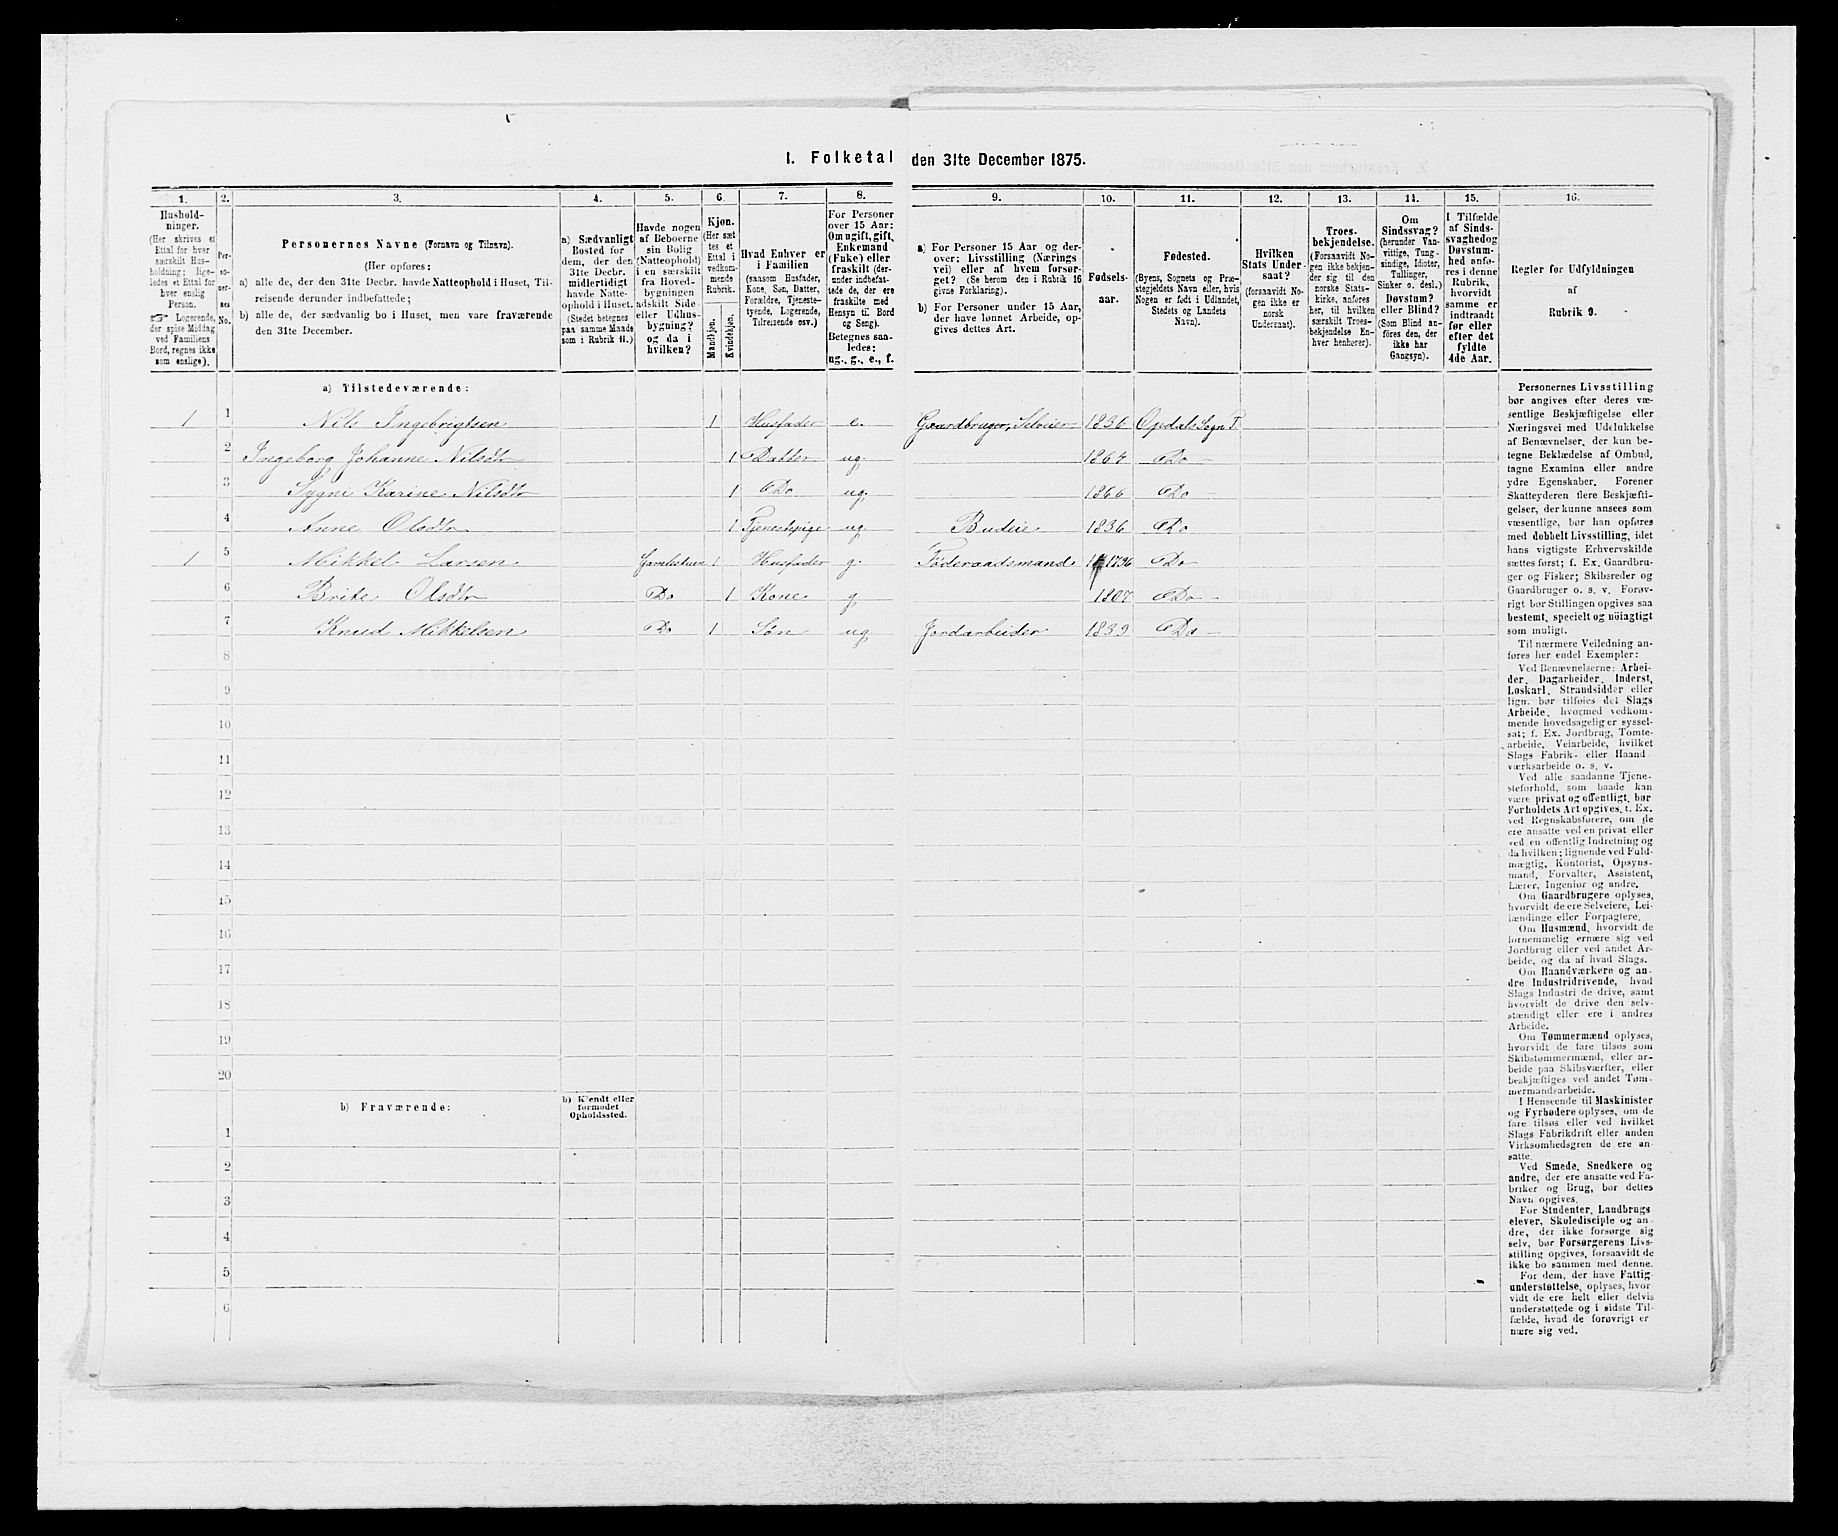 1. Folketal den 31te December 1875.
1. 2. 3. 4. 5. 6. 7. 8. 9. 10. 11. 12. 13. 14. 15. 16.
Hushold-
ninger.
(Her skrives et
Ettal for hver
særskilt Hus-
holdning; lige-
ledes et Ettal for
hver enslig
Person.
☞ Logerende,
der spise Middag
ved Familiens
Bord, regnes ikke
som enslige).
Per-
so-
ner-
nes
No.
Personernes Navne (Fornavn og Tilnavn).
(Her opføres:
a) alle de, der den 31te Decbr. havde Natteophold i Huset, Til-
reisende derunder indbefattede;
b) alle de, der sædvanlig bo i Huset, men vare fraværende
den 31te December.
a) Sædvanligt
Bosted for
dem, der den
31te Decbr.
midlertidigt
havde Natte-
ophold i Huset.
(Stedet betegnes
paa samme Maade
som i Rubrik 11.)
Havde nogen
af Beboerne
sin Bolig
(Natteophold)
i en særskilt
fra Hoved-
bygningen
adskilt Side-
eller Udhus-
bygning?
og da i
hvilken?
Kjøn.
(Her sæt-
tes et
Ettal i
vedkom-
mende
Rubrik.
Mandkjøn.
Kvindekjøn.
Hvad Enhver er
i Familien
(saasom Husfader,
Kone, Søn, Datter,
Forældre, Tjeneste-
tyende, Logerende,
Tilreisende osv.)
For Personer
over 15 Aar:
Om ugift, gift,
Enkemand
(Enke) eller
fraskilt (der-
under indbefat-
tede de, der ere
fraskilte med
Hensyn til Bord
og Seng).
Betegnes saa-
ledes:
ug., g., e., f.
a) For Personer 15 Aar og der-
over: Livsstilling (Nærings
vei) eller af hvem forsør-
get? (Se herom den i Rubrik 16
givne Forklaring).
b) For Personer under 15 Aar,
der have lønnet Arbeide, op-
gives dettes Art.
Fødsels-
aar.
Fødested.
(Byens, Sognets og Præ-
stegjeldets Navn eller, hvis
Nogen er født i Udlandet,
Stedets og Landets
Navn).
Hvilken
Stats Under-
saat?
(forsaavidt No-
gen ikke er
norsk
Undersaat).
Troes-
bekjendelse.
(Forsaavidt No-
gen ikke bekjen-
der sig til den
norske Stats-
kirke, anføres
her, til hvilken
særskilt Troes-
bekjendelse En-
hver henhører).
Om
Sindssvag?
(herunder Van-
vittige, Tung-
sindige, Idioter,
Tullinger,
Sinker o. desl.)
Døvstum?
eller Blind?
(Som Blind an-
føres den, der
ikke har
Gangsyn).
I Tilfælde
af Sinds-
svaghed og
Døvstum-
hed anfø-
res i denne
Rubrik,
hvorvidt
samme er
indtraadt
før eller
efter det
fyldte
4de Aar.
Regler for Udfyldningen
af
Rubrik 9.
a) Tilstedeværende:
1 1 Nils Ingebrigtsen 1 Husfader e. Gaardbruger, Selveier 1836 Opdals Sogn T
2 Ingeborg Johanne Nilsdtr 1 Datter ug. 1864 Do
3 Sygni Karine Nilsdtr 1 Do ug. 1866 Do
4 Anne Olsdtr 1 Tjenestepige ug Budeie 1836 Do
1 5 Mikkel Larsen Gamlestuen 1 Husfader g. Föderaadsmand 1796 Do
6 Brite Olsdtr Do 1 Kone g 1807 Do
7 Knud Mikkelsen Do 1 Søn ug Jordarbeider 1839 Do
8
9
10
11
12
13
14
15
16
17
18
19
20
b) Fraværende:
b) Kjendt eller
formodet
Opholdssted.
1
2
3
4
5
6
Personernes Livsstilling
bør angives efter deres væ-
sentlige Beskjæftigelse eller
Næringsvei med Udelukkelse
af Benævnelser, der kun be-
tegne Beklædelse af Ombud,
tagne Examina eller andre
ydre Egenskaber. Forener
Skatteyderen flere Beskjæfti-
gelser, der kunne ansees som
væsentlige, bør han opføres
med dobbelt Livsstilling, idet
hans vigtigste Erhvervskilde
sættes først; f. Ex. Gaardbru-
ger og Fisker; Skibsreder og
Gaardbruger o. s. v. Forøv-
rigt bør Stillingen opgives saa
bestemt, specielt og nöiagtigt
som muligt.
Til nærmere Veiledning an-
føres her endel Exempler:
Ved Benævnelserne: Arbei-
der, Dagarbeider, Inderst,
Løskarl, Strandsidder eller
lign. bør tilføies det Slags
Arbeide, hvormed vedkom-
mende hovedsagelig er syssel-
sat; f. Ex. Jordbrug, Tomte-
arbeide, Veiarbeide, hvilket
Slags Fabrik- eller Haand-
værksarbeide o. s. v.
Ved alle saadanne Tjene-
steforhold, som baade kan
være privat og offentligt, bør
Forholdets Art opgives, t. Ex.
ved Regnskabsførere, om de
ere ansatte ved en privat eller
ved en offentlig Indretning og
da hvilken; lignende ved Fuld-
mægtig, Kontorist, Opsyns-
mand, Forvalter, Assistent,
Lærer, Ingeniør og andre.
Om Gaardbrugere oplyses,
hvorvidt de ere Selveiere, Lei-
lændinge eller Forpagtere.
Om Husmænd, hvorvidt de
fornemmelig ernære sig ved
Jordbrug eller ved andet Ar-
beide, og da af hvad Slags.
Om Haandværkere og an-
dre Industridrivende, hvad
Slags Industri de drive, samt
hvorvidt de drive den selv-
stændigt eller ere i andres
Arbeide.
Om Tømmermænd oplyses,
hvorvidt de fare tilsøs som
Skibstømmermænd, eller ar-
beide paa Skibsværfter, eller
beskjæftiges ved andet Tøm-
mermandsarbeide.
I Henseende til Maskinister
og Fyrbødere oplyses, om de
fare tilsøs eller ved hvilket
Slags Fabrikdrift eller anden
Virksomhedsgren de ere an-
satte.
Ved Smede, Snedkere og
andre, der ere ansatte ved Fa-
briker og Brug, bør dettes
Navn opgives.
For Studenter, Landbrugs-
elever, Skoledisciple og an-
dre, der ikke forsørge sig
selv, bør Forsørgerens Livs-
stilling opgives, forsaavidt de
ikke bo sammen med denne.
For dem, der have Fattig-
understøttelse, oplyses, hvor-
vidt de ere helt eller delvis
understøttede og i sidste Til-
fælde, hvad de forøvrigt er-
nære sig ved.